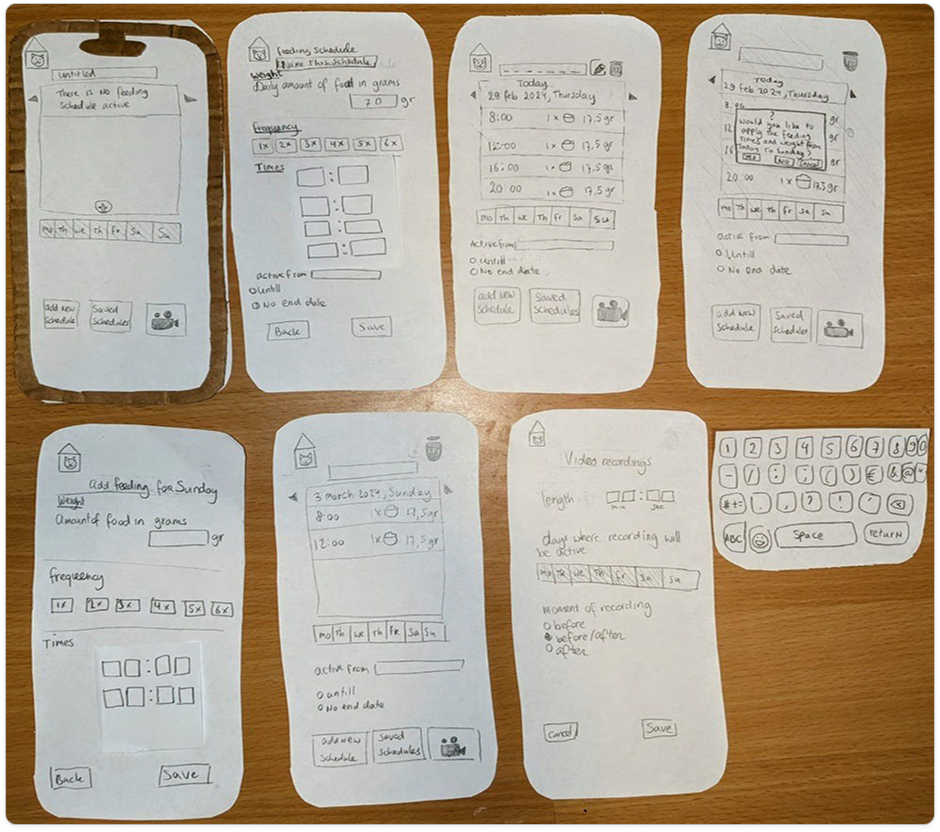 untitled
There is No feeding
Schedule active
Mo Th We Th Fr Sa Su
add New
Schedule
Saved
Schedules
feeding schedule
Name this schedule
Weight
Daily amount of food in grams
70 gr
frequency
1x 2x 3x 4x 5x 6x
Times
: 
:
:
:
active from
untill
No end date
Back Save
Today
29 feb 2024, Thursday
8:00 1x 17,5 gr
12:00 1x 17,5 gr
16:00 1x 17,5 gr
20:00 1x 17,5 gr
Mo Th We Th Fr Sa Su
Active from
untill
No end date
add NEW
Schedule
Saved
Schedules
Today
29 feb 2024, Thursday
8:00
gr
12
gr
16
gr
?
Would you like to
apply the feeding
times and weight from
today to Sunday?
Yes No Cancel
20:00 1x 17,5 gr
Mo Th We Th Fr Sa Su
active from
Untill
No end date
add new
Schedule
Saved
Schedules
Add feeding for Sunday
Weight
Amount of food in grams
gr
frequency
1x 2x 3x 4x 5x 6x
Times
:
:
Back Save
3 march 2024, Sunday
8:00 1x 17,5 gr
12:00 1x 17,5 gr
Mo Th We Th Fr Sa Su
active from
untill
No end date
add new
Schedule
Saved
Schedules
Video recordings
length :
min sec
days where recording will
be active
Mo Th We Th Fr Sa Su
Moment of recording
before
before/after
after
Cancel Save
1 2 3 4 5 6 7 8 9 0
- / : ; ( ) € & @ "
#+= . , ? ! '
ABC Space return